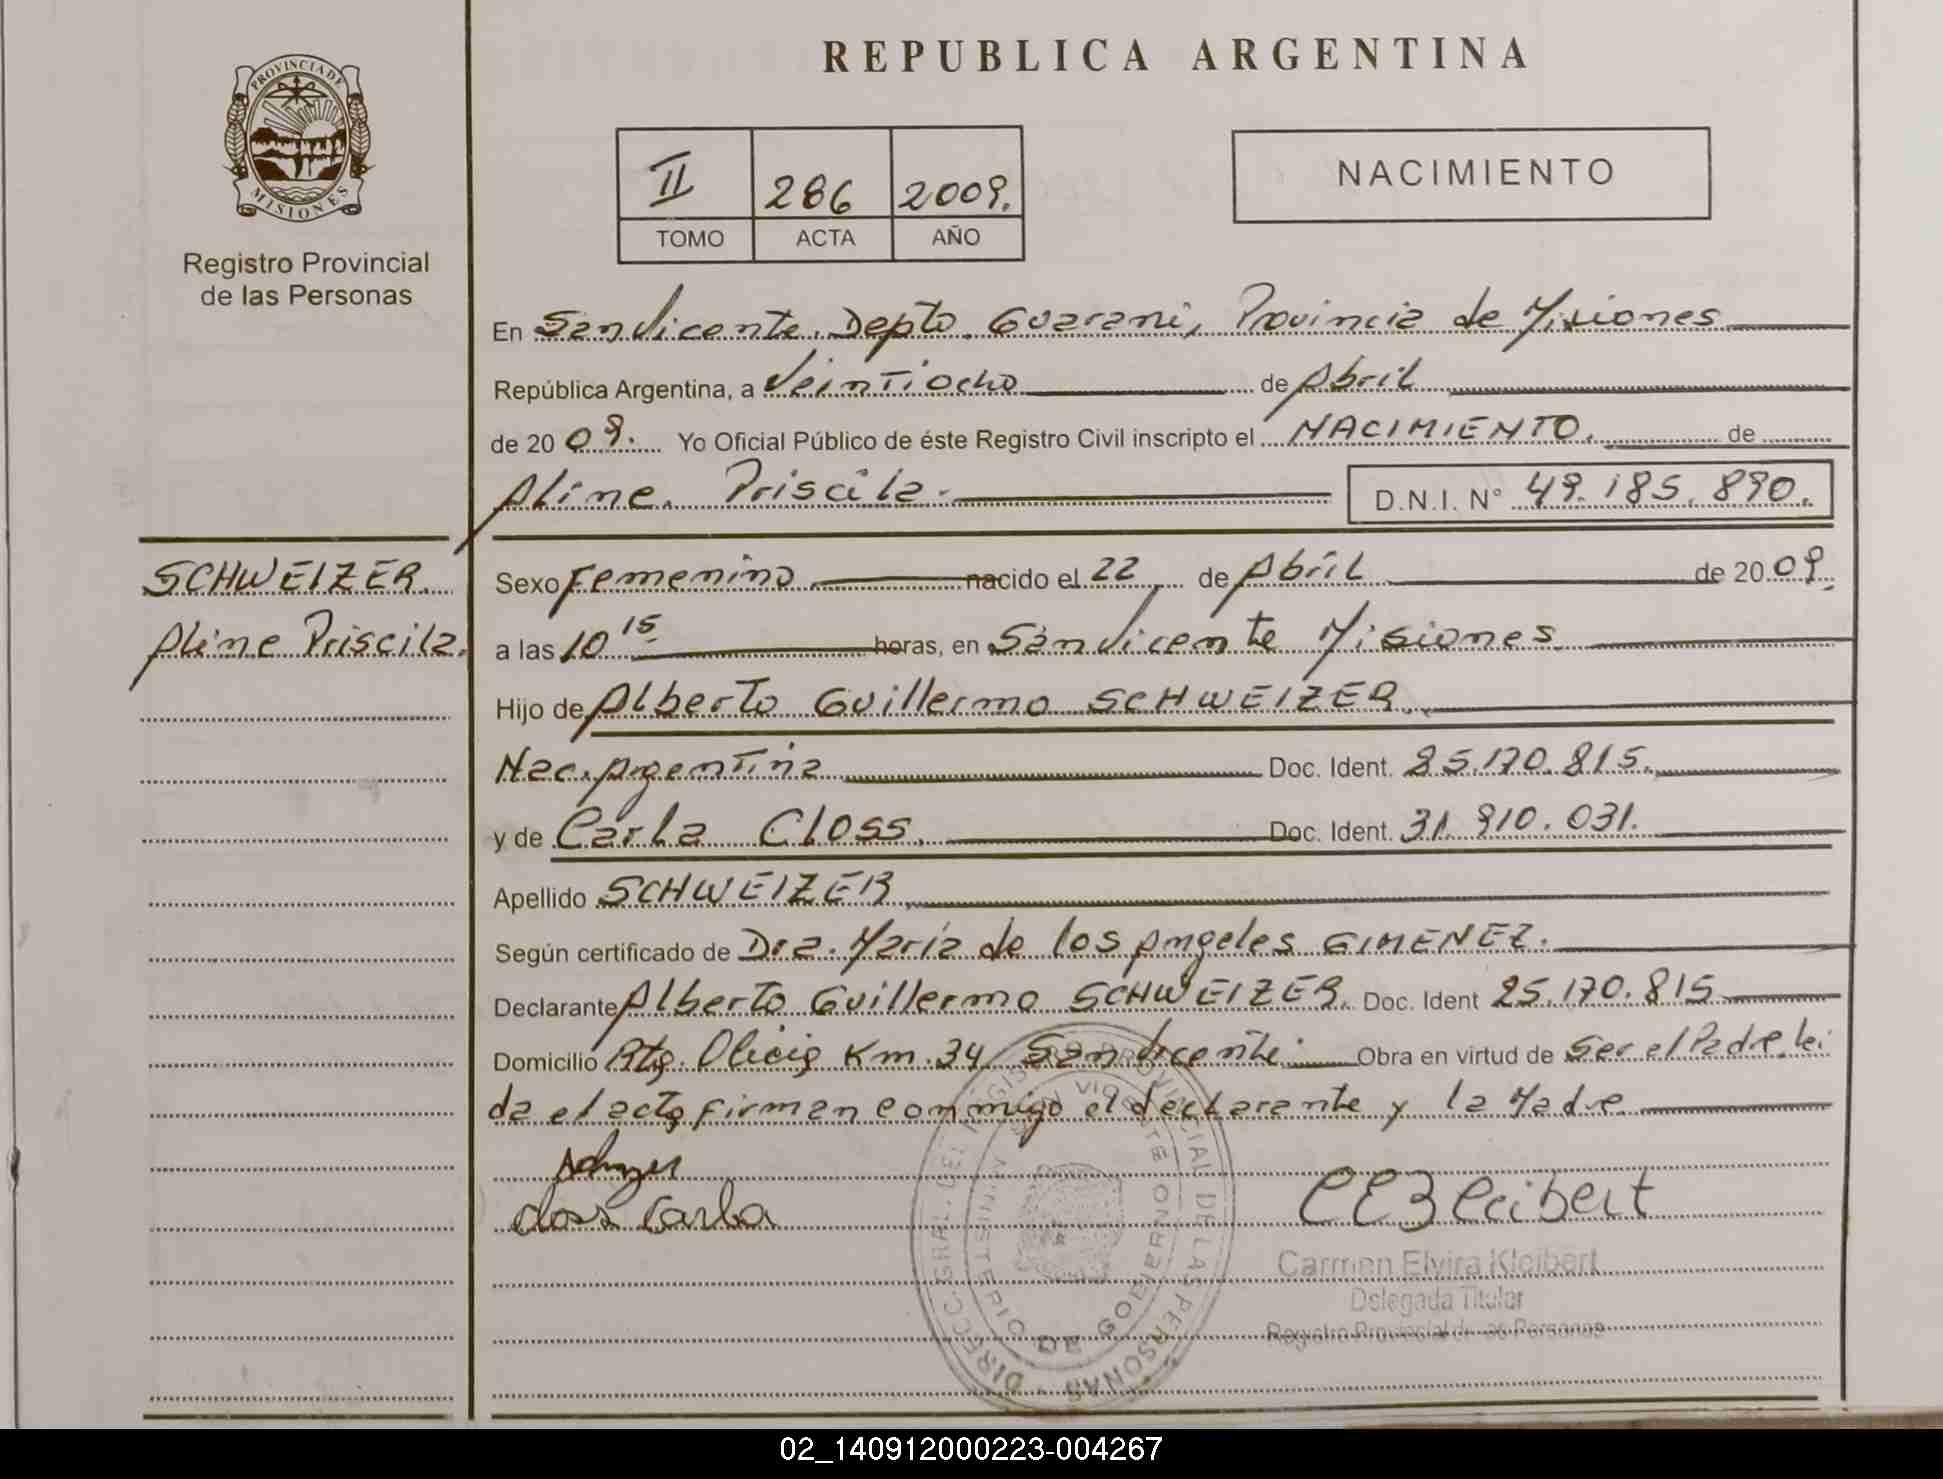 PROVINCIA DE
MISIONES
Registro Provincial
de las Personas
REPUBLICA ARGENTINA
II 286 2009.
TOMO ACTA AÑO
NACIMIENTO
En San Vicente, Depto. Guarani, Provincia de Misiones
República Argentina, a Veintiocho de Abril
de 20 09. Yo Oficial Público de éste Registro Civil inscripto el NACIMIENTO. de
Aline Priscila. D.N.I. N° 49.185.890.
SCHWEIZER.
Aline Priscila.
Sexo Femenino nacido el 22 de Abril de 20 09.
a las 10 15 horas, en San Vicente Misiones
Hijo de Alberto Guillermo SCHWEIZER.
Nac. Argentina Doc. Ident. 25.170.815.
y de Carla Closs. Doc. Ident. 31.910.031.
Apellido SCHWEIZER
Según certificado de Dra. Maria de los Angeles GIMENEZ.
Declarante Alberto Guillermo SCHWEIZER. Doc. Ident 25.170.815
Domicilio Km. 34 San Vicente. Obra en virtud de Ser el Padre. lei
da el acta firman conmigo el declarante y la Madre
Closs Carla
DIREC. GRAL. DEL REGISTRO PROVINCIAL DE LAS PERSONAS
MINISTERIO DE GOBIERNO
SAN VICENTE
Carmen Elvira Kleibert
Delegada Titular
Registro Provincial de las Personas
02_140912000223-004267